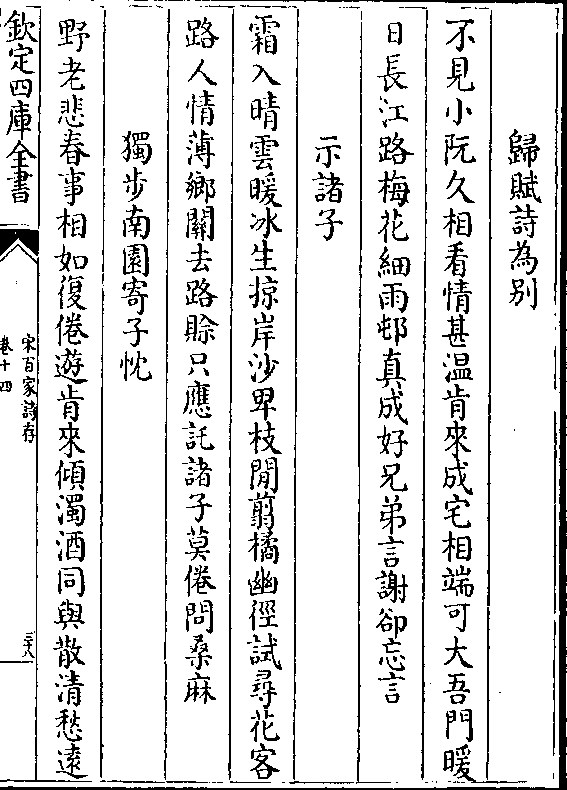 歸賦詩為别
不見小阮久相看情甚温肯來成宅相端可大吾門暖
日長江路梅花細雨邨真成好兄弟言謝卻忘言
示諸子
霜入晴雲暖冰生掠岸沙卑枝閒翦橘幽徑試尋花客
路人情薄鄉關去路賖只應託諸子莫倦問桑麻
獨步南園寄子忱
野老悲春事相如復倦遊肯來傾濁酒同與散清愁遠
欽定四庫全書
宋百家詩存
卷十四
三八